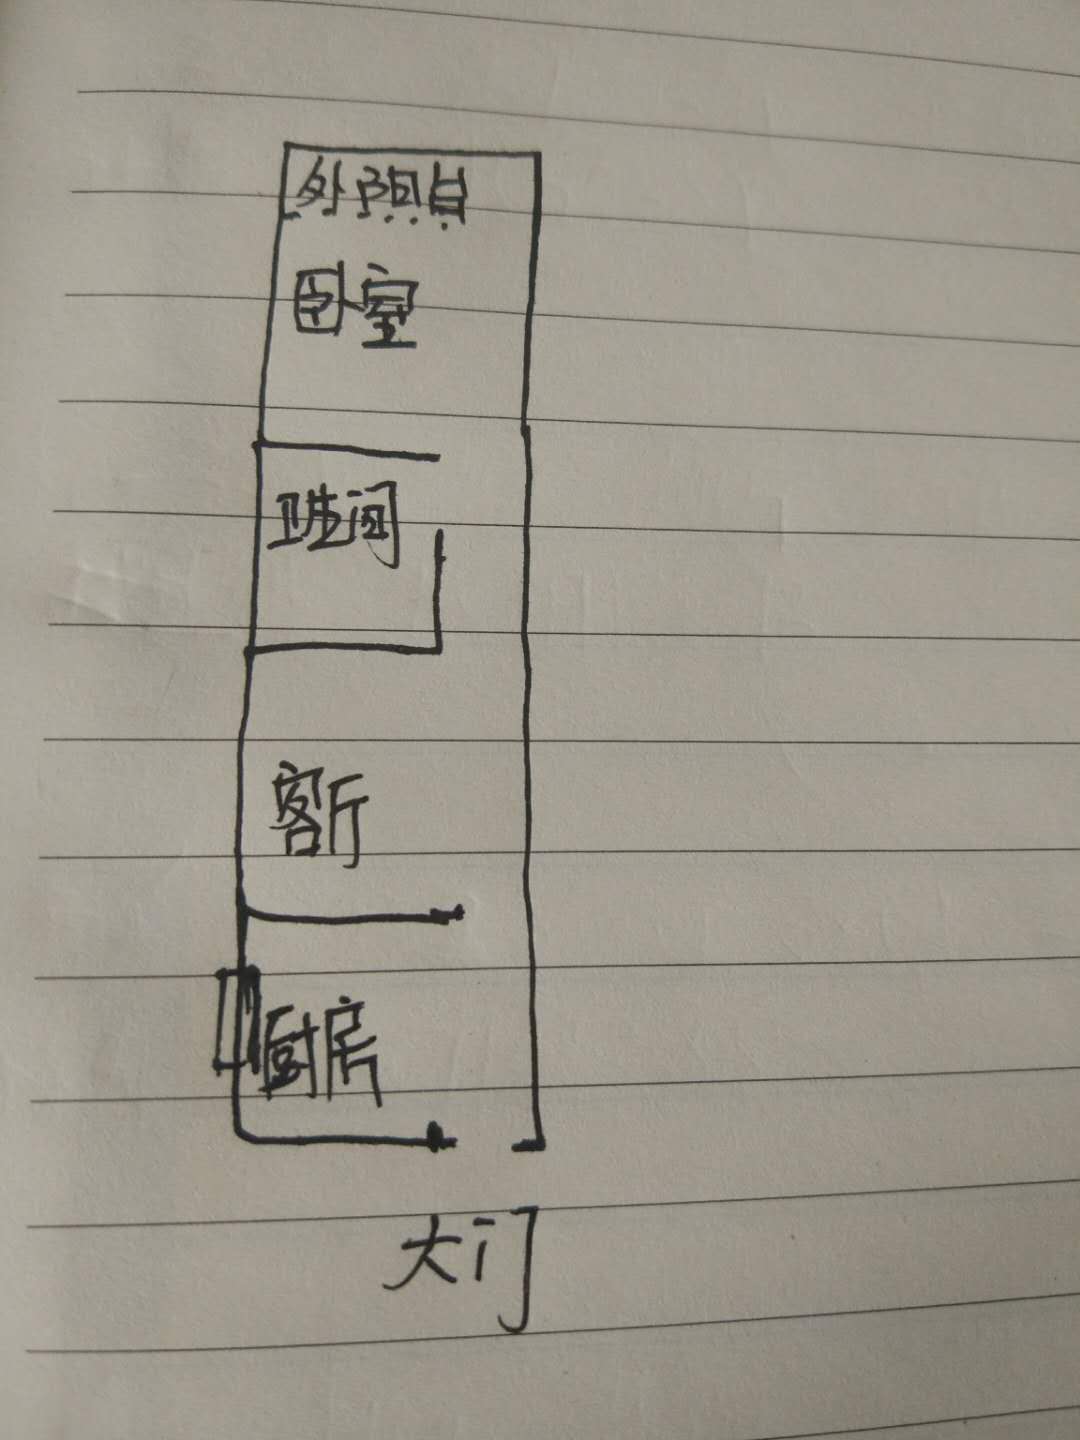 外阳台
卧室
卫生间
客厅
厨房
大门